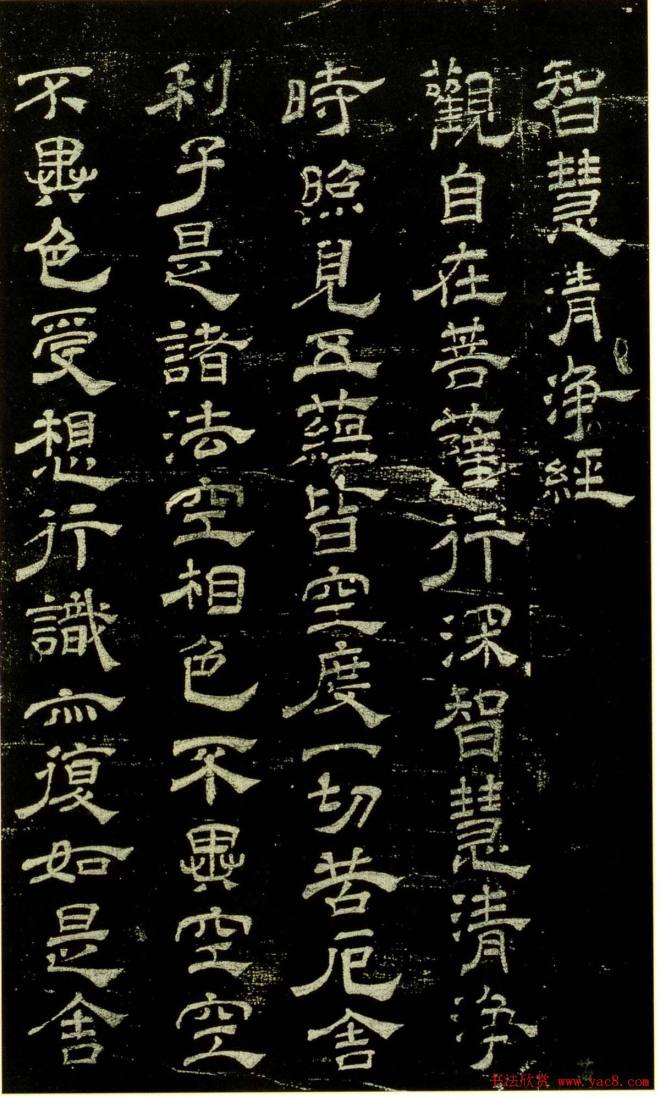 智慧清淨經
觀自在菩薩行深智慧清淨
時照見五蘊皆空度一切苦厄舍
利子是諸法空相色不異空空
不異色受想行識亦復如是舍
书法欣赏 www.yac8.com